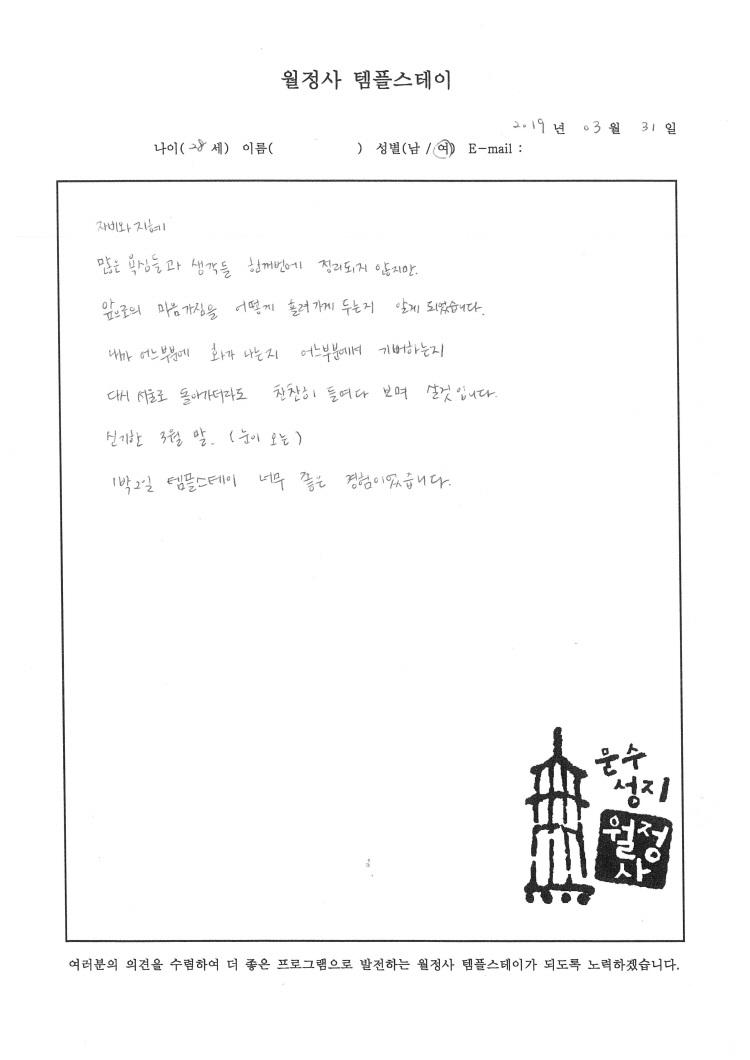 월정사 템플스테이
2019 년 03 월 31 일
나이( 28 세) 이름( ) 성별(남 / 여) E-mail :
자비와 지혜
많은 욕심들과 생각들 한꺼번에 정리되지 않지만.
앞으로의 마음가짐을 어떻게 흘려가게 두는지 알게 되었습니다.
내가 어느부분에 화가 나는지 어느부분에서 기뻐하는지
다시 서울로 돌아가더라도 찬찬히 들여다 보며 살것입니다.
신기한 3월 말. (눈이 오는)
1박2일 템플스테이 너무 좋은 경험이었습니다.
문수
성지
월정
사
여러분의 의견을 수렴하여 더 좋은 프로그램으로 발전하는 월정사 템플스테이가 되도록 노력하겠습니다.